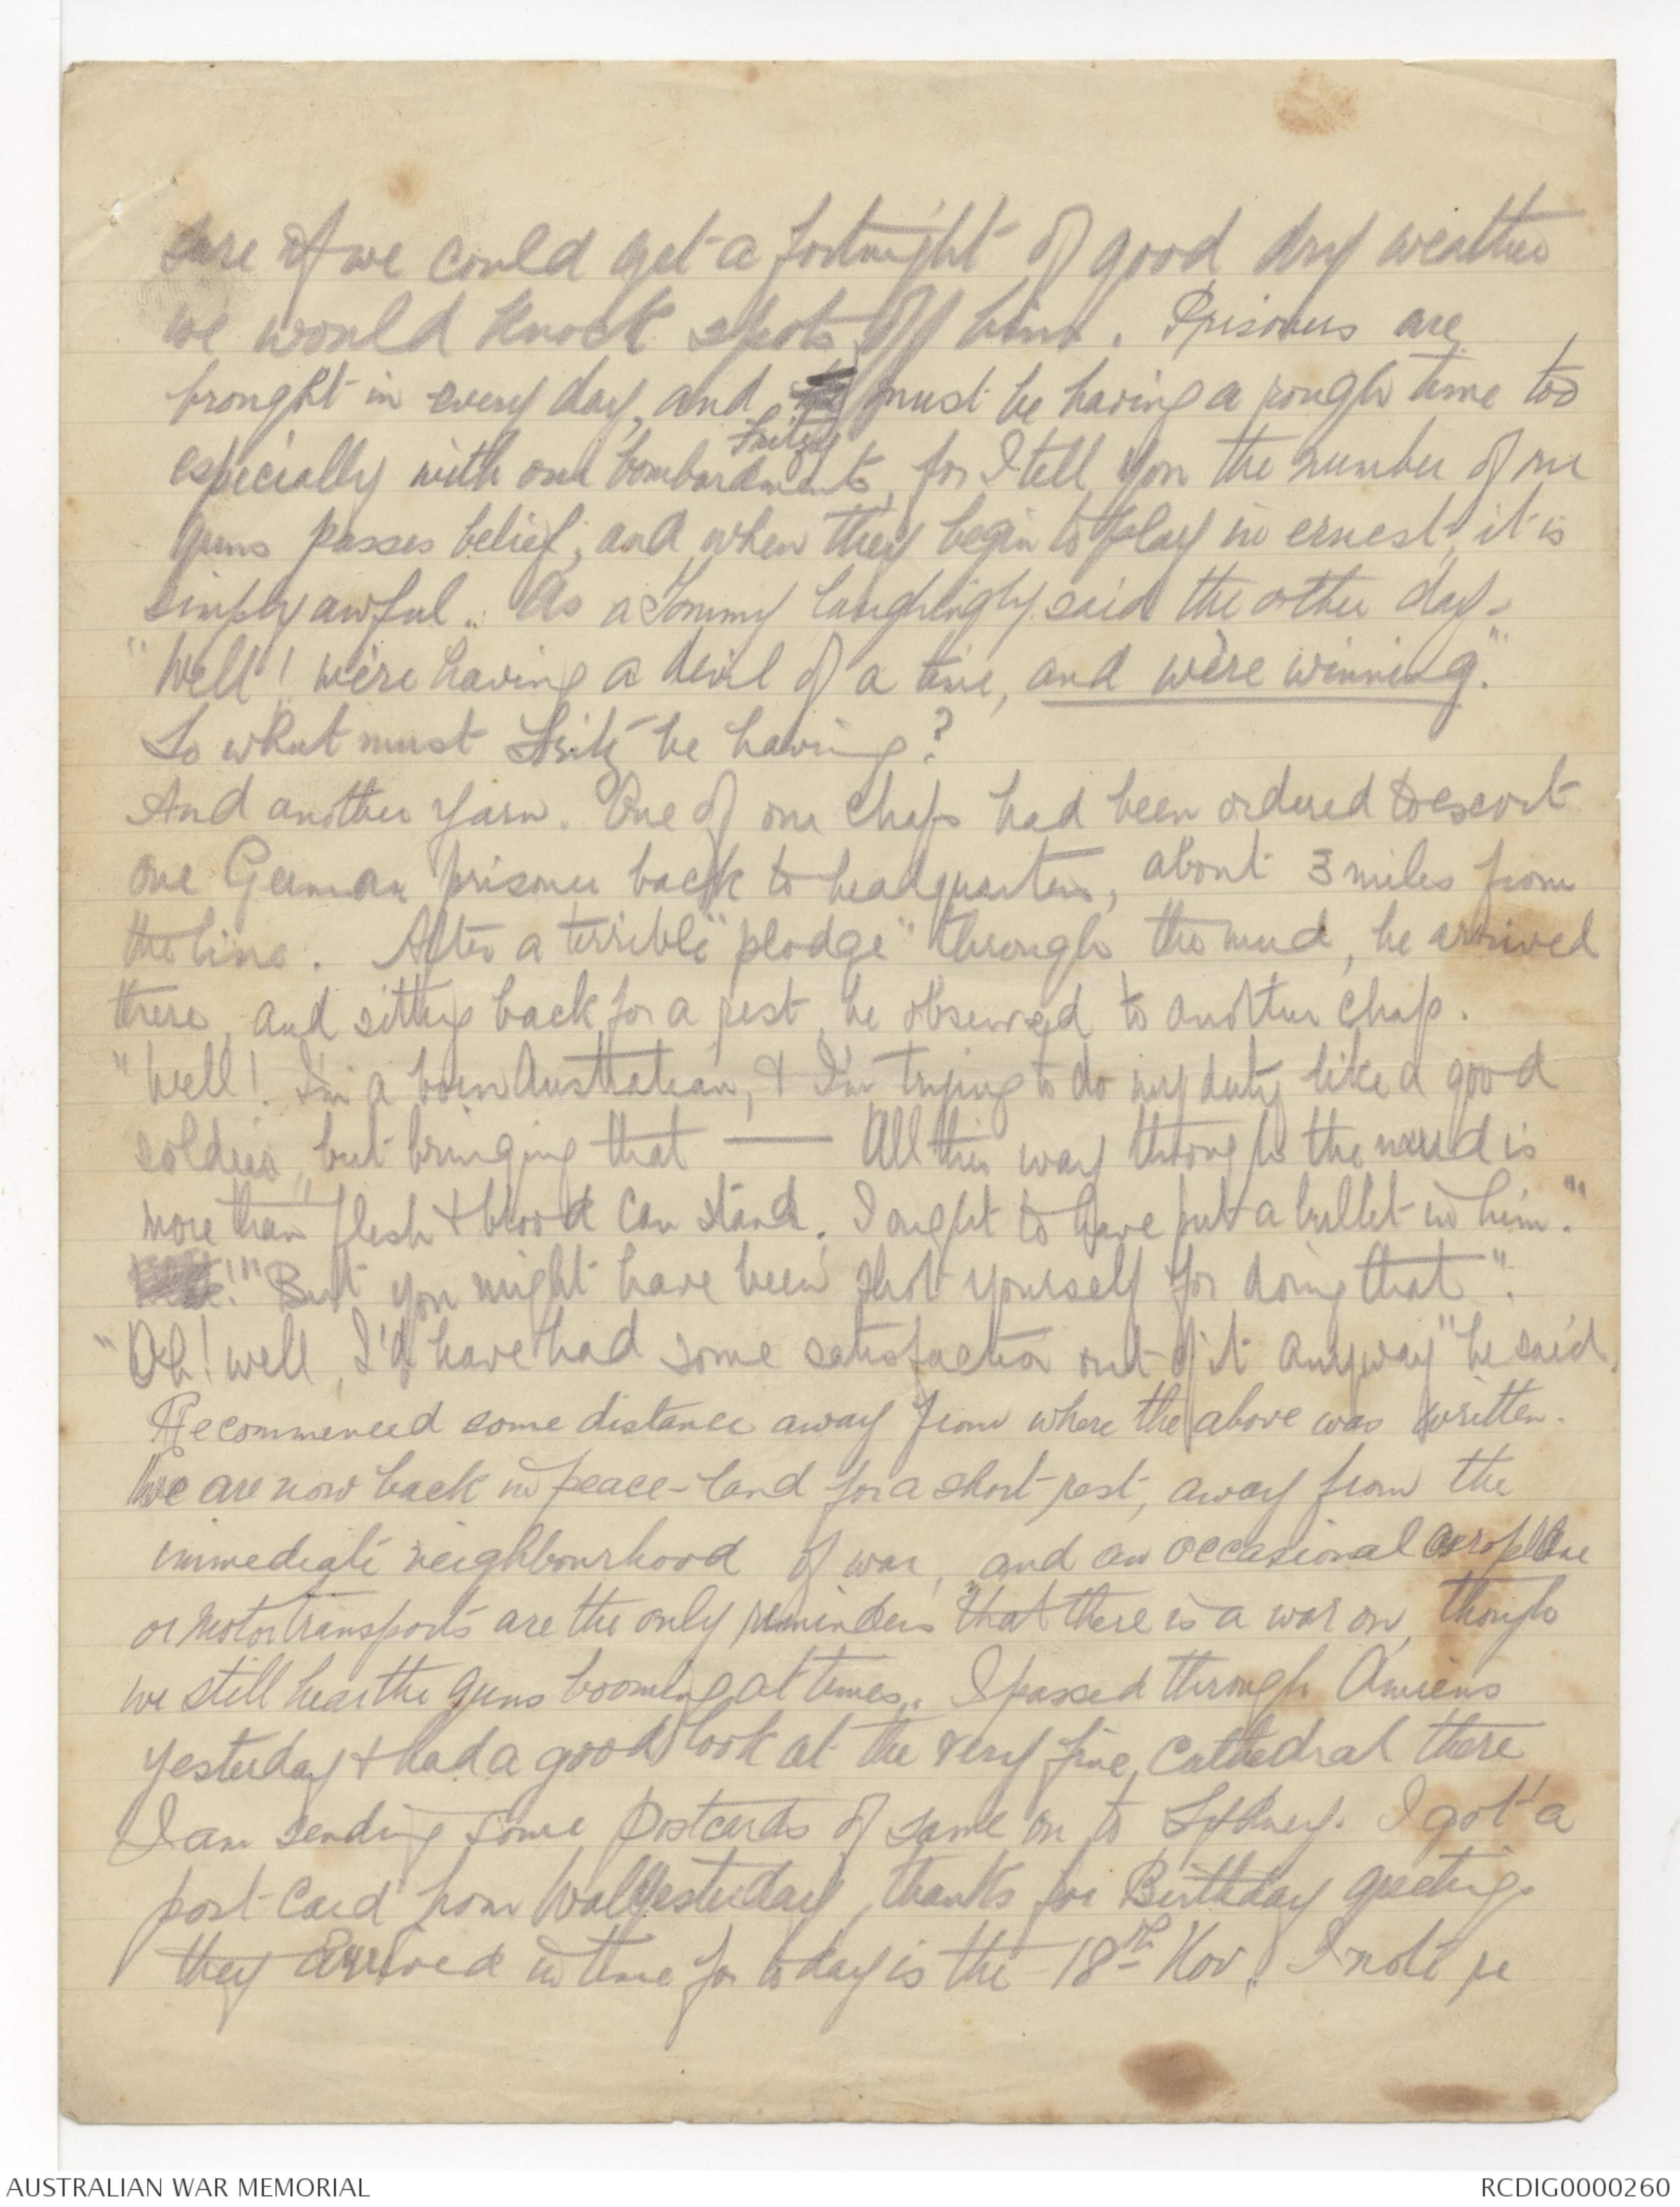 sure if we could get a fortnight of good dry weather
we would knock spots off him. Prisoners are
brought in every day, and Fritzy must be having a rough time too
especially with our bombardments, for I tell you the number of our
guns passes belief, and when they begin to play in ernest, it is
simply awful. As a Tommy laughingly said the other day -
"Well! we're having a devil of a time, and we're winning."
So what must Fritz be having?
And another yarn. One of our chaps had been ordered to escort
one German prisoner back to headquarters, about 3 miles from
the line. After a terrible "plodge" through the mud, he arrived
there, and sitting back for a rest, he observed to another chap.
"Well! I'm a born Australian, & I'm trying to do my duty like a good
soldier, but bringing that —— All this way through the mud is
more than flesh & blood can stand. I ought to have put a bullet in him."
"But you might have been shot yourself for doing that".
"Oh! well, I'd have had some satisfaction out of it anyway" he said.
Recommenced some distance away from where the above was written.
We are now back in peace-land for a short rest, away from the
immediate neighbourhood of war, and an occasional aeroplane
or motor transports are the only reminders that there is a war on, though
we still hear the guns booming at times. I passed through Amiens
yesterday & had a good look at the very fine Cathedral there
I am sending some postcards of same on to Sydney. I got a
post card from Wal yesterday, thanks for Birthday greetings
they arrived in time for today is the 18th Nov. I note re
AUSTRALIAN WAR MEMORIAL
RCDIG0000260